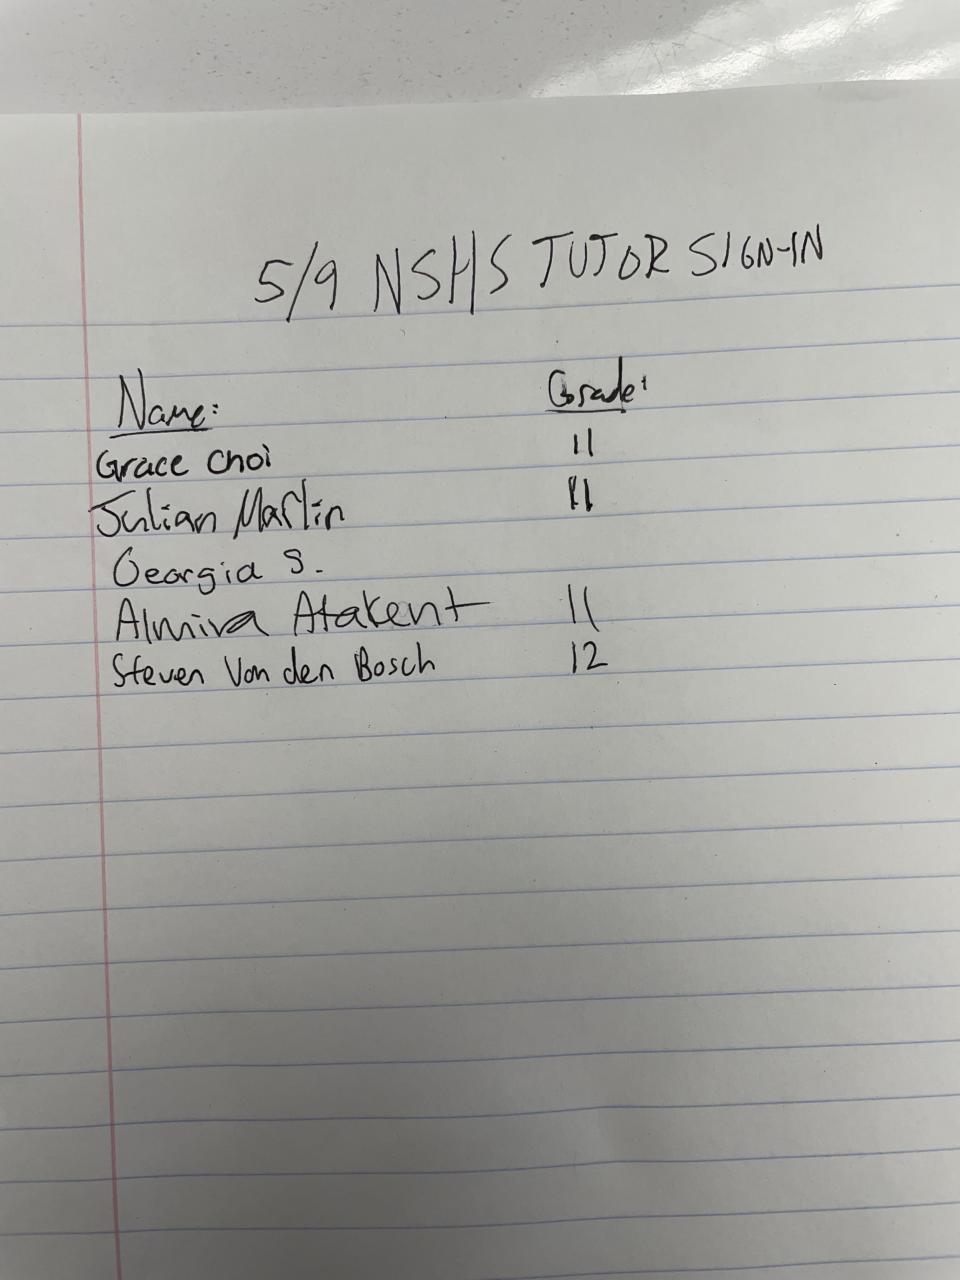 5/9 NSHS TUTOR SIGN-IN
Name: Grade:
Grace Choi 11
Julian Martin 11
Georgia S.
Almira Atakent 11
Steven Van den Bosch 12